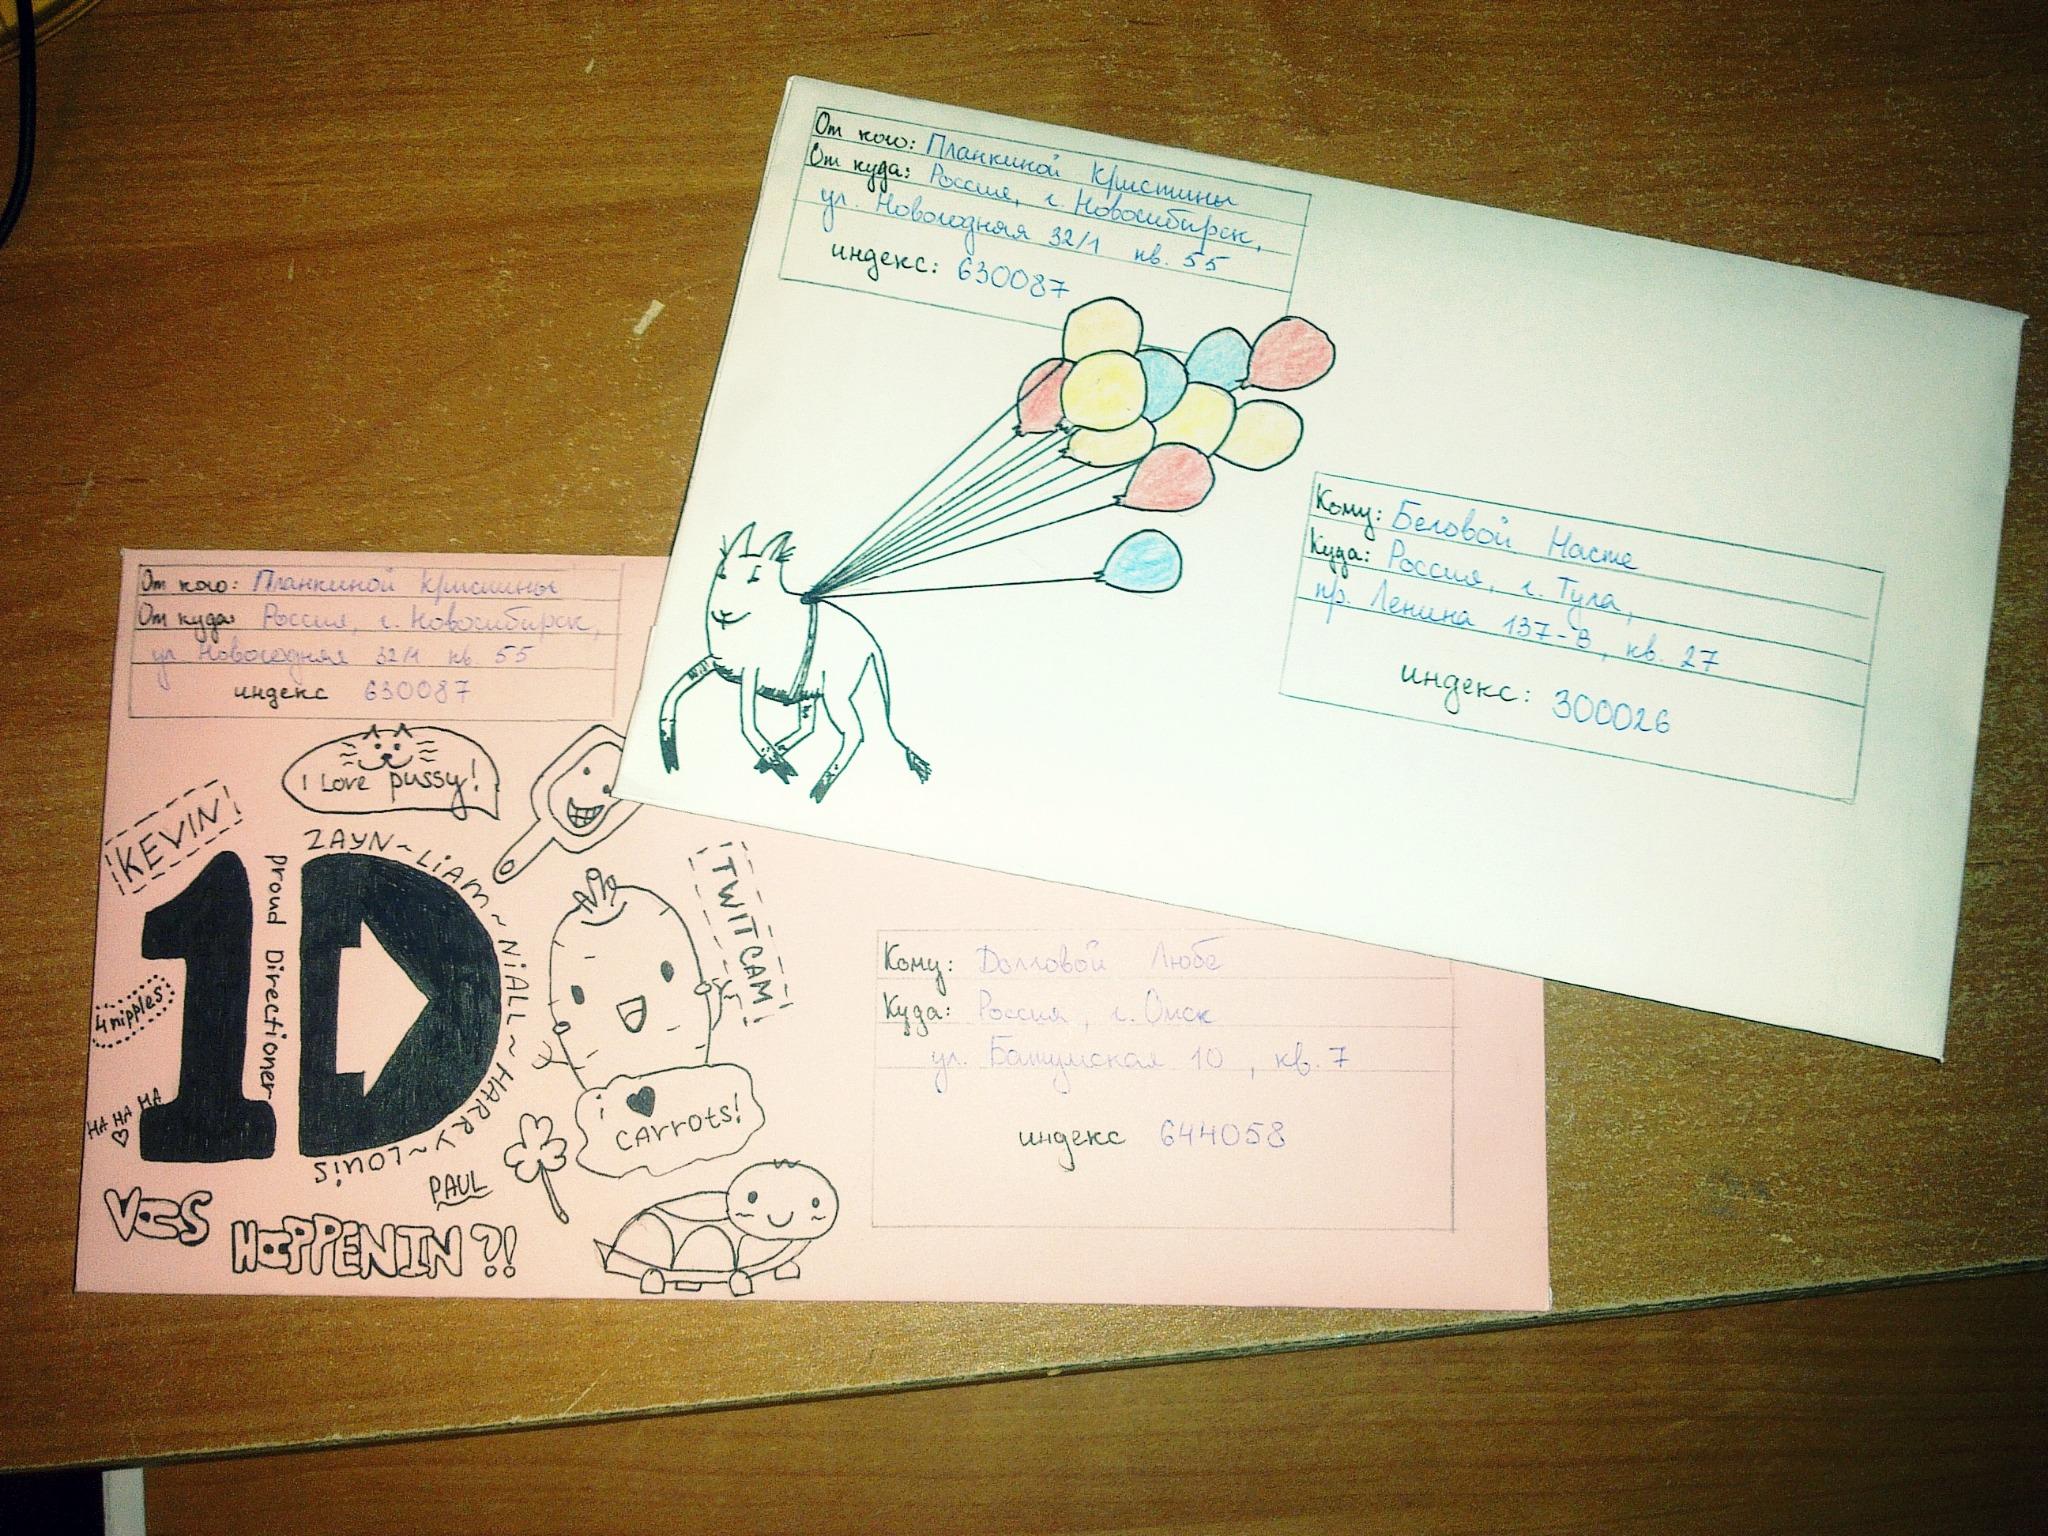 От кого: Планкиной Кристины
От куда: Россия, г. Новосибирск,
ул. Новогодняя 32/1 кв. 55
индекс: 630087
Кому: Беловой Насте
Куда: Россия, г. Тула,
пр. Ленина 137-В, кв. 27
индекс: 300026
От кого: Планкиной Кристины
От куда: Россия, г. Новосибирск,
ул Новогодняя 32/1 кв. 55
индекс 630087
I Love pussy!
KEVIN
1D
proud Directioner
ZAYN~LiAM~NiALL~HARRY~LOUiS
TWITCAM
4 nipples
HA HA HA
i ♥
CArrots!
PAUL
VAS
HAPPENIN?!
Кому: Долговой Любе
Куда: Россия, г. Омск
ул. Батумская 10, кв. 7
индекс 644058